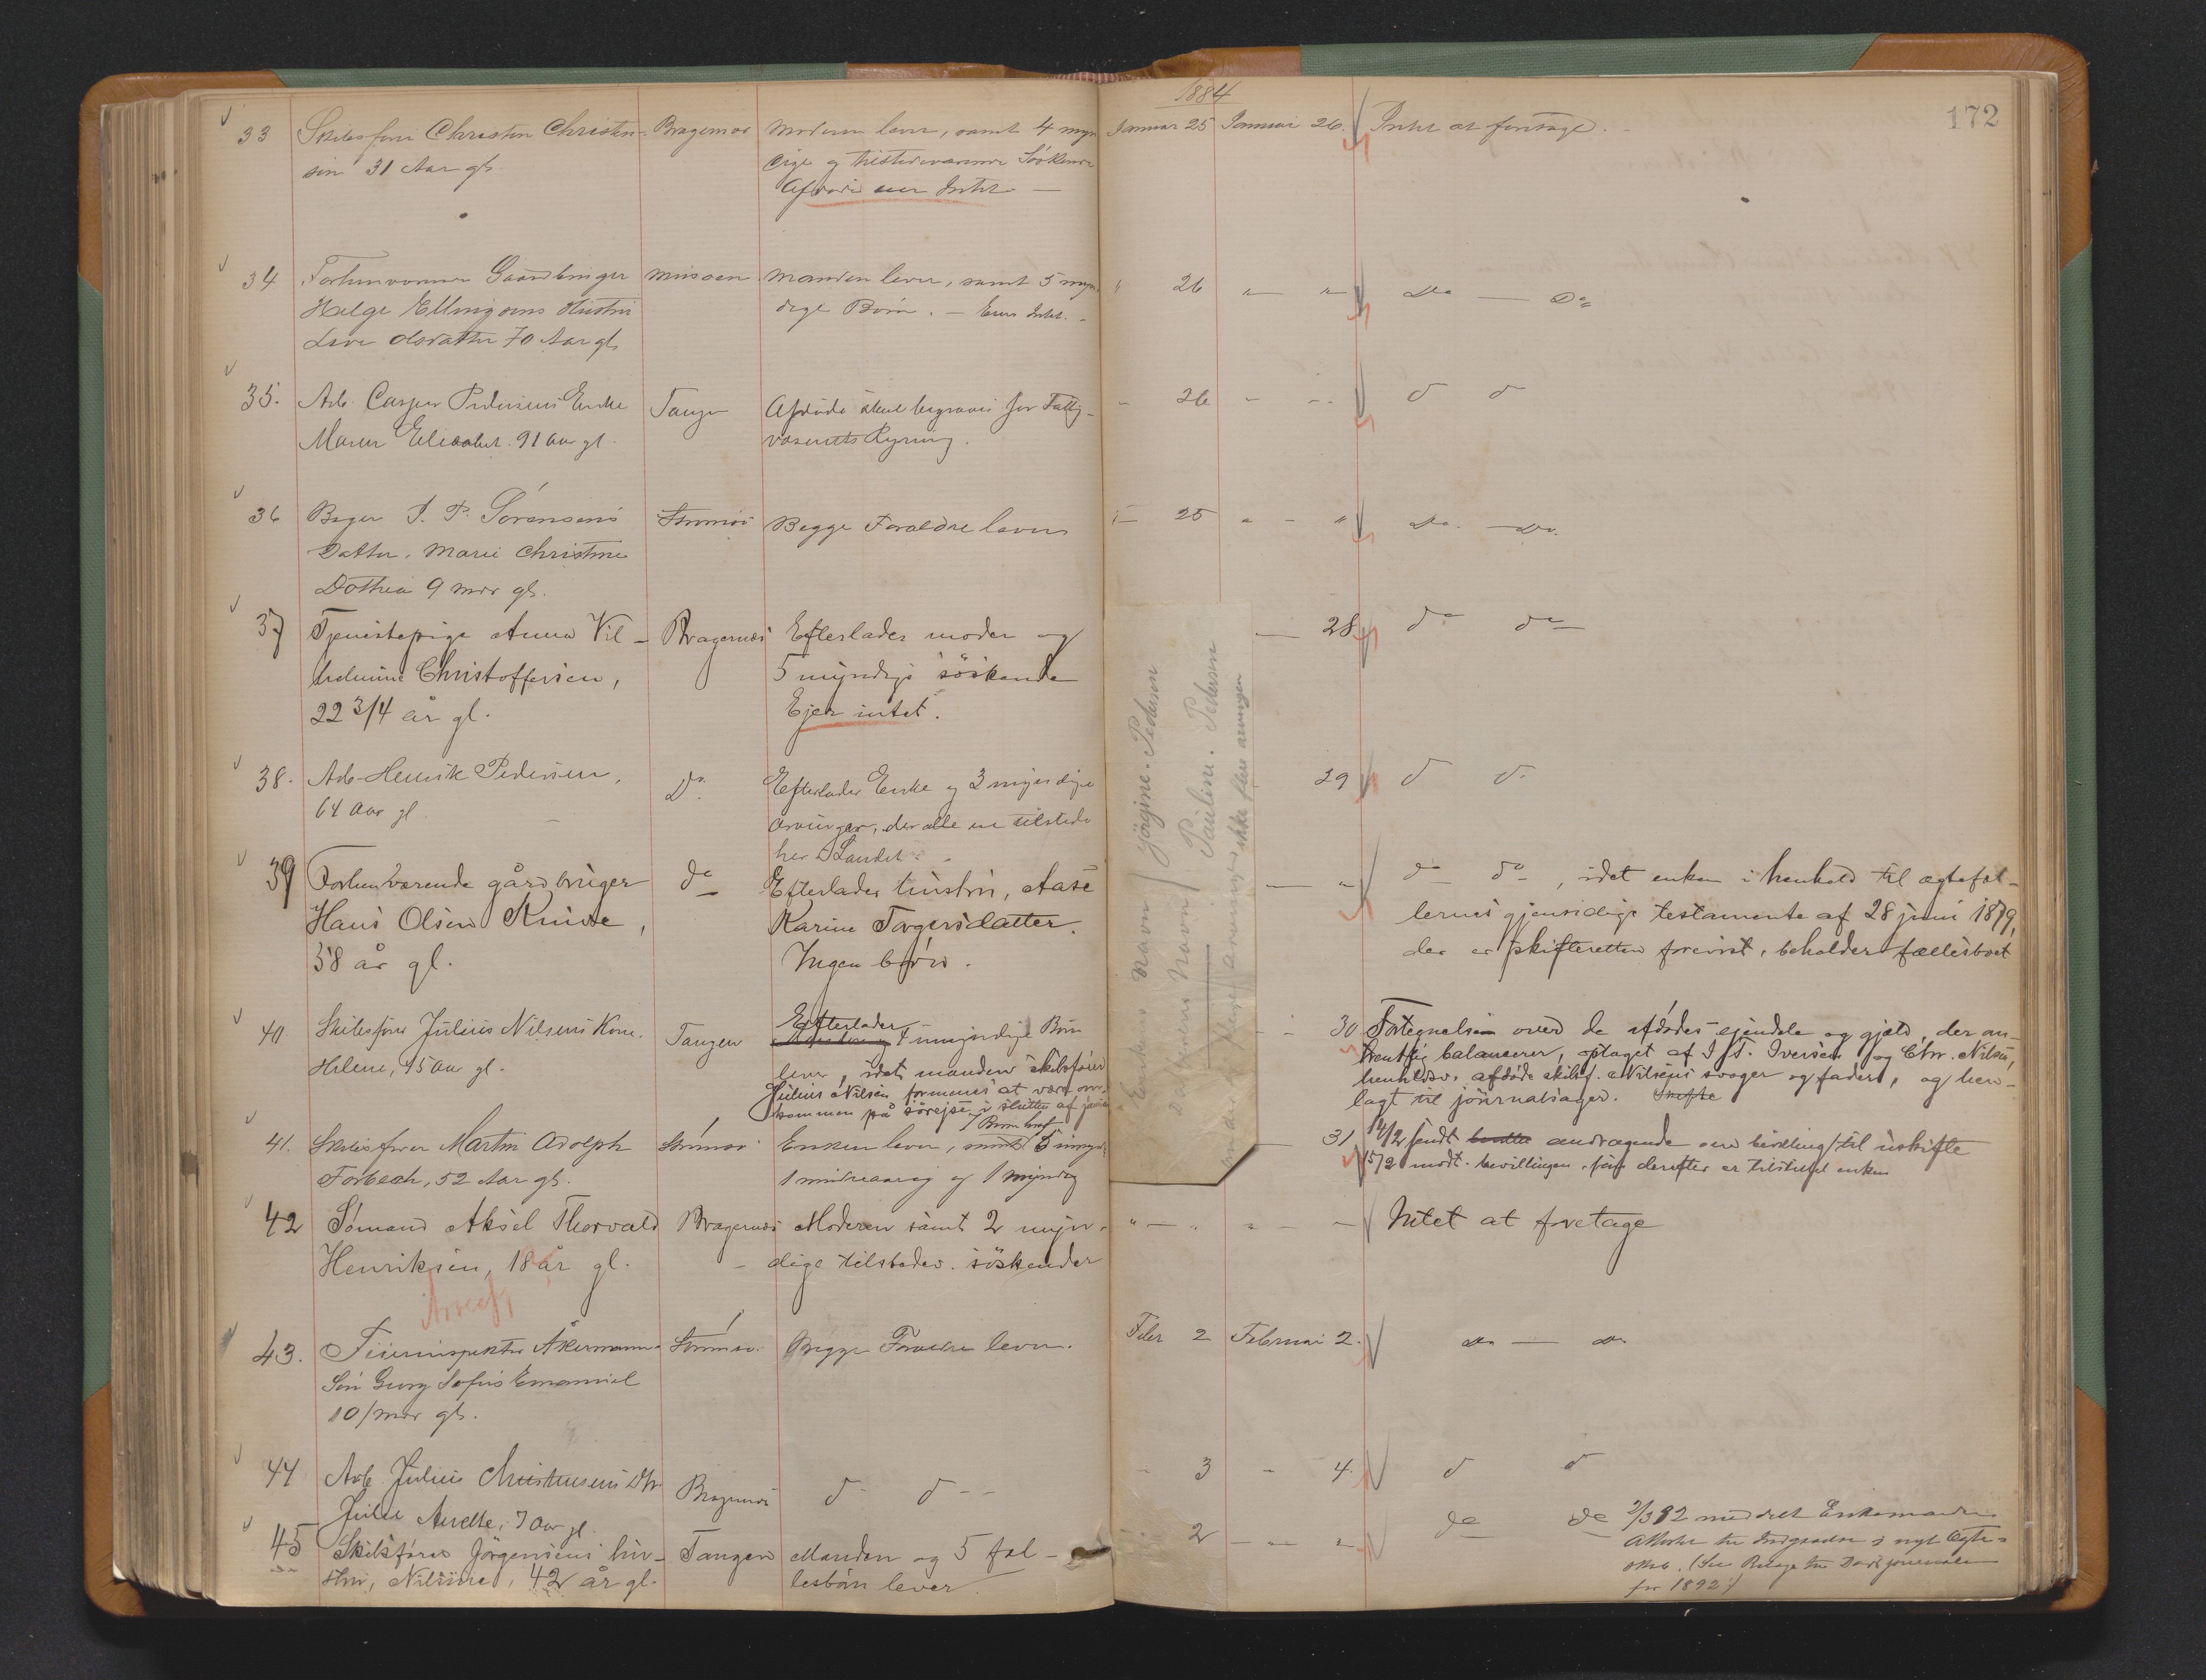 1884
172
33 Skibsfører Christen Christen- Bragernæs Moderen lever, samt 4 myn Januar 25 Januar 26. Intet at foretage.
sen 31 Aar gl. dige og tilstedeværende Söskende
Afdøde eier Intet
34 Forhenværende Gaardbruger Manden lever, samt 5 myn " 26 " " Do Do
Helge Ellingsens Hustru dige Børn. - Eier Intet. -
Olsdatter 70 Aar gl.
35. Arb. Casper Pedersens Enke Tangen Afdøde skal begraves for Fattig- - 26 - - d d
Maren Elisabet. 91 aar gl. væsenets Regning.
36 Bager J. P. Sörensens Strømsö Begge Forældre lever - 25 " - " Do. Do.
Datter, Marie Christine
Dothea 9 mdr gl.
37 Tjenestepige Anna Vil- Bragernæs Efterlader moder og 28 do do
helmine Christoffersen, 5 myndige söskende
22 3/4 år gl. Ejer intet.
38. Arb. Henrik Pedersen, Do. Efterlader Enke og 3 myndige 29 d d.
64 Aar gl. arvinger, der alle er tilstede
her i Landet.
39 Forhenværende gårdbruger do Efterlader hustru, Aase - " do do, idet enken i henhold til ægtefæl-
Hans Olsen Knive, Karine Torgersdatter. lernes gjensidige testamente af 28 juni 1879,
58 år gl. Ingen børn. der er skifteretten forevist, beholder fællesboet
Enkens navn Jørgine. Pedersen
Datterens Navn Pauline. Pedersen
ikke flere arvinger
40. Skibsfører Julius Nilsens Kone Tangen Efterlader 4 umyndige Børn 30 Fortegnelse over de afdødes ejendele og gjæld, der an-
Helene, 45 aar gl. lever, idet manden skibsfører trentlig balancerer, optaget af J. T. Iversen og Chr. Nilsen,
Julius Nilsen formenes at være om- henholdsv. afdøde skibsf. Nilsens svoger og fader, og hen-
kommen på sørejse i slutten af lagt til journalsager. Skifte
41. Skibsfører Martin Adolph Strømsø Enken lever, samt 5 Børn hvoraf 31 14/2 sendt andragende om bevilling til uskifte
Forbech, 52 Aar gl. 1 mindreaarig og 1 myndig 15/2 modt. bevillingen, som derefter er tilstillet enken
42 Sömand Aksel Thorvald Bragernæs Moderen samt 2 myn- " - " - - Intet at foretage
Henriksen, 18 år gl. - dige tilstedev. söskender
43. Åkermanns Strømsø. Begge Forældre lever. Febr 2 Februar 2. do - do
Sön Georg Sofus Emanuel
10/ mdr gl.
44 Arb. Julius Christensens Dtr Bragernæs d d - - - 3 - 4. d d
Julie Aurelle, 7 Aar gl.
45 Skibsfører Jörgensens hu- Tangen Manden og 5 fæl- 2 - - " do do 2/3 92 meddelt Enkemanden
stru, Nilsine, 42 år gl. lesbørn lever. Attest til Indgaaelse i nyt Ægte-
skab. (Se Bilage til Dødsjournalen
for 1892)